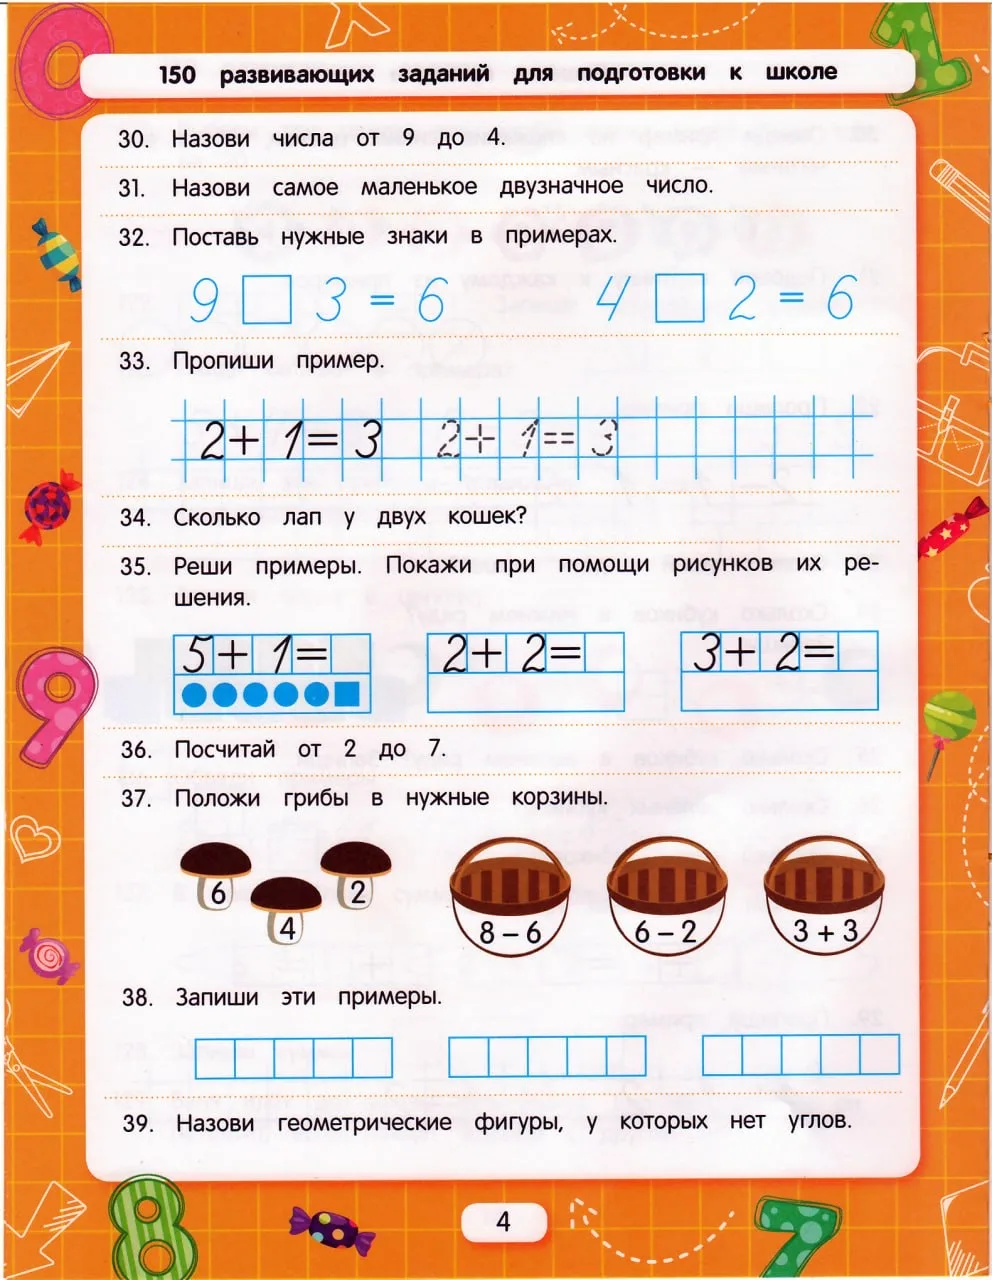 150 развивающих заданий для подготовки к школе
30. Назови числа от 9 до 4.
31. Назови самое маленькое двузначное число.
32. Поставь нужные знаки в примерах.
9 □ 3 = 6 4 □ 2 = 6
33. Пропиши пример.
2+ 1= 3 2+ 1== 3
34. Сколько лап у двух кошек?
35. Реши примеры. Покажи при помощи рисунков их ре-
шения.
5+ 1= 2+ 2= 3+ 2=
36. Посчитай от 2 до 7.
37. Положи грибы в нужные корзины.
6 4 2 8 – 6 6 – 2 3 + 3
38. Запиши эти примеры.
39. Назови геометрические фигуры, у которых нет углов.
4
0
1
9
8
7